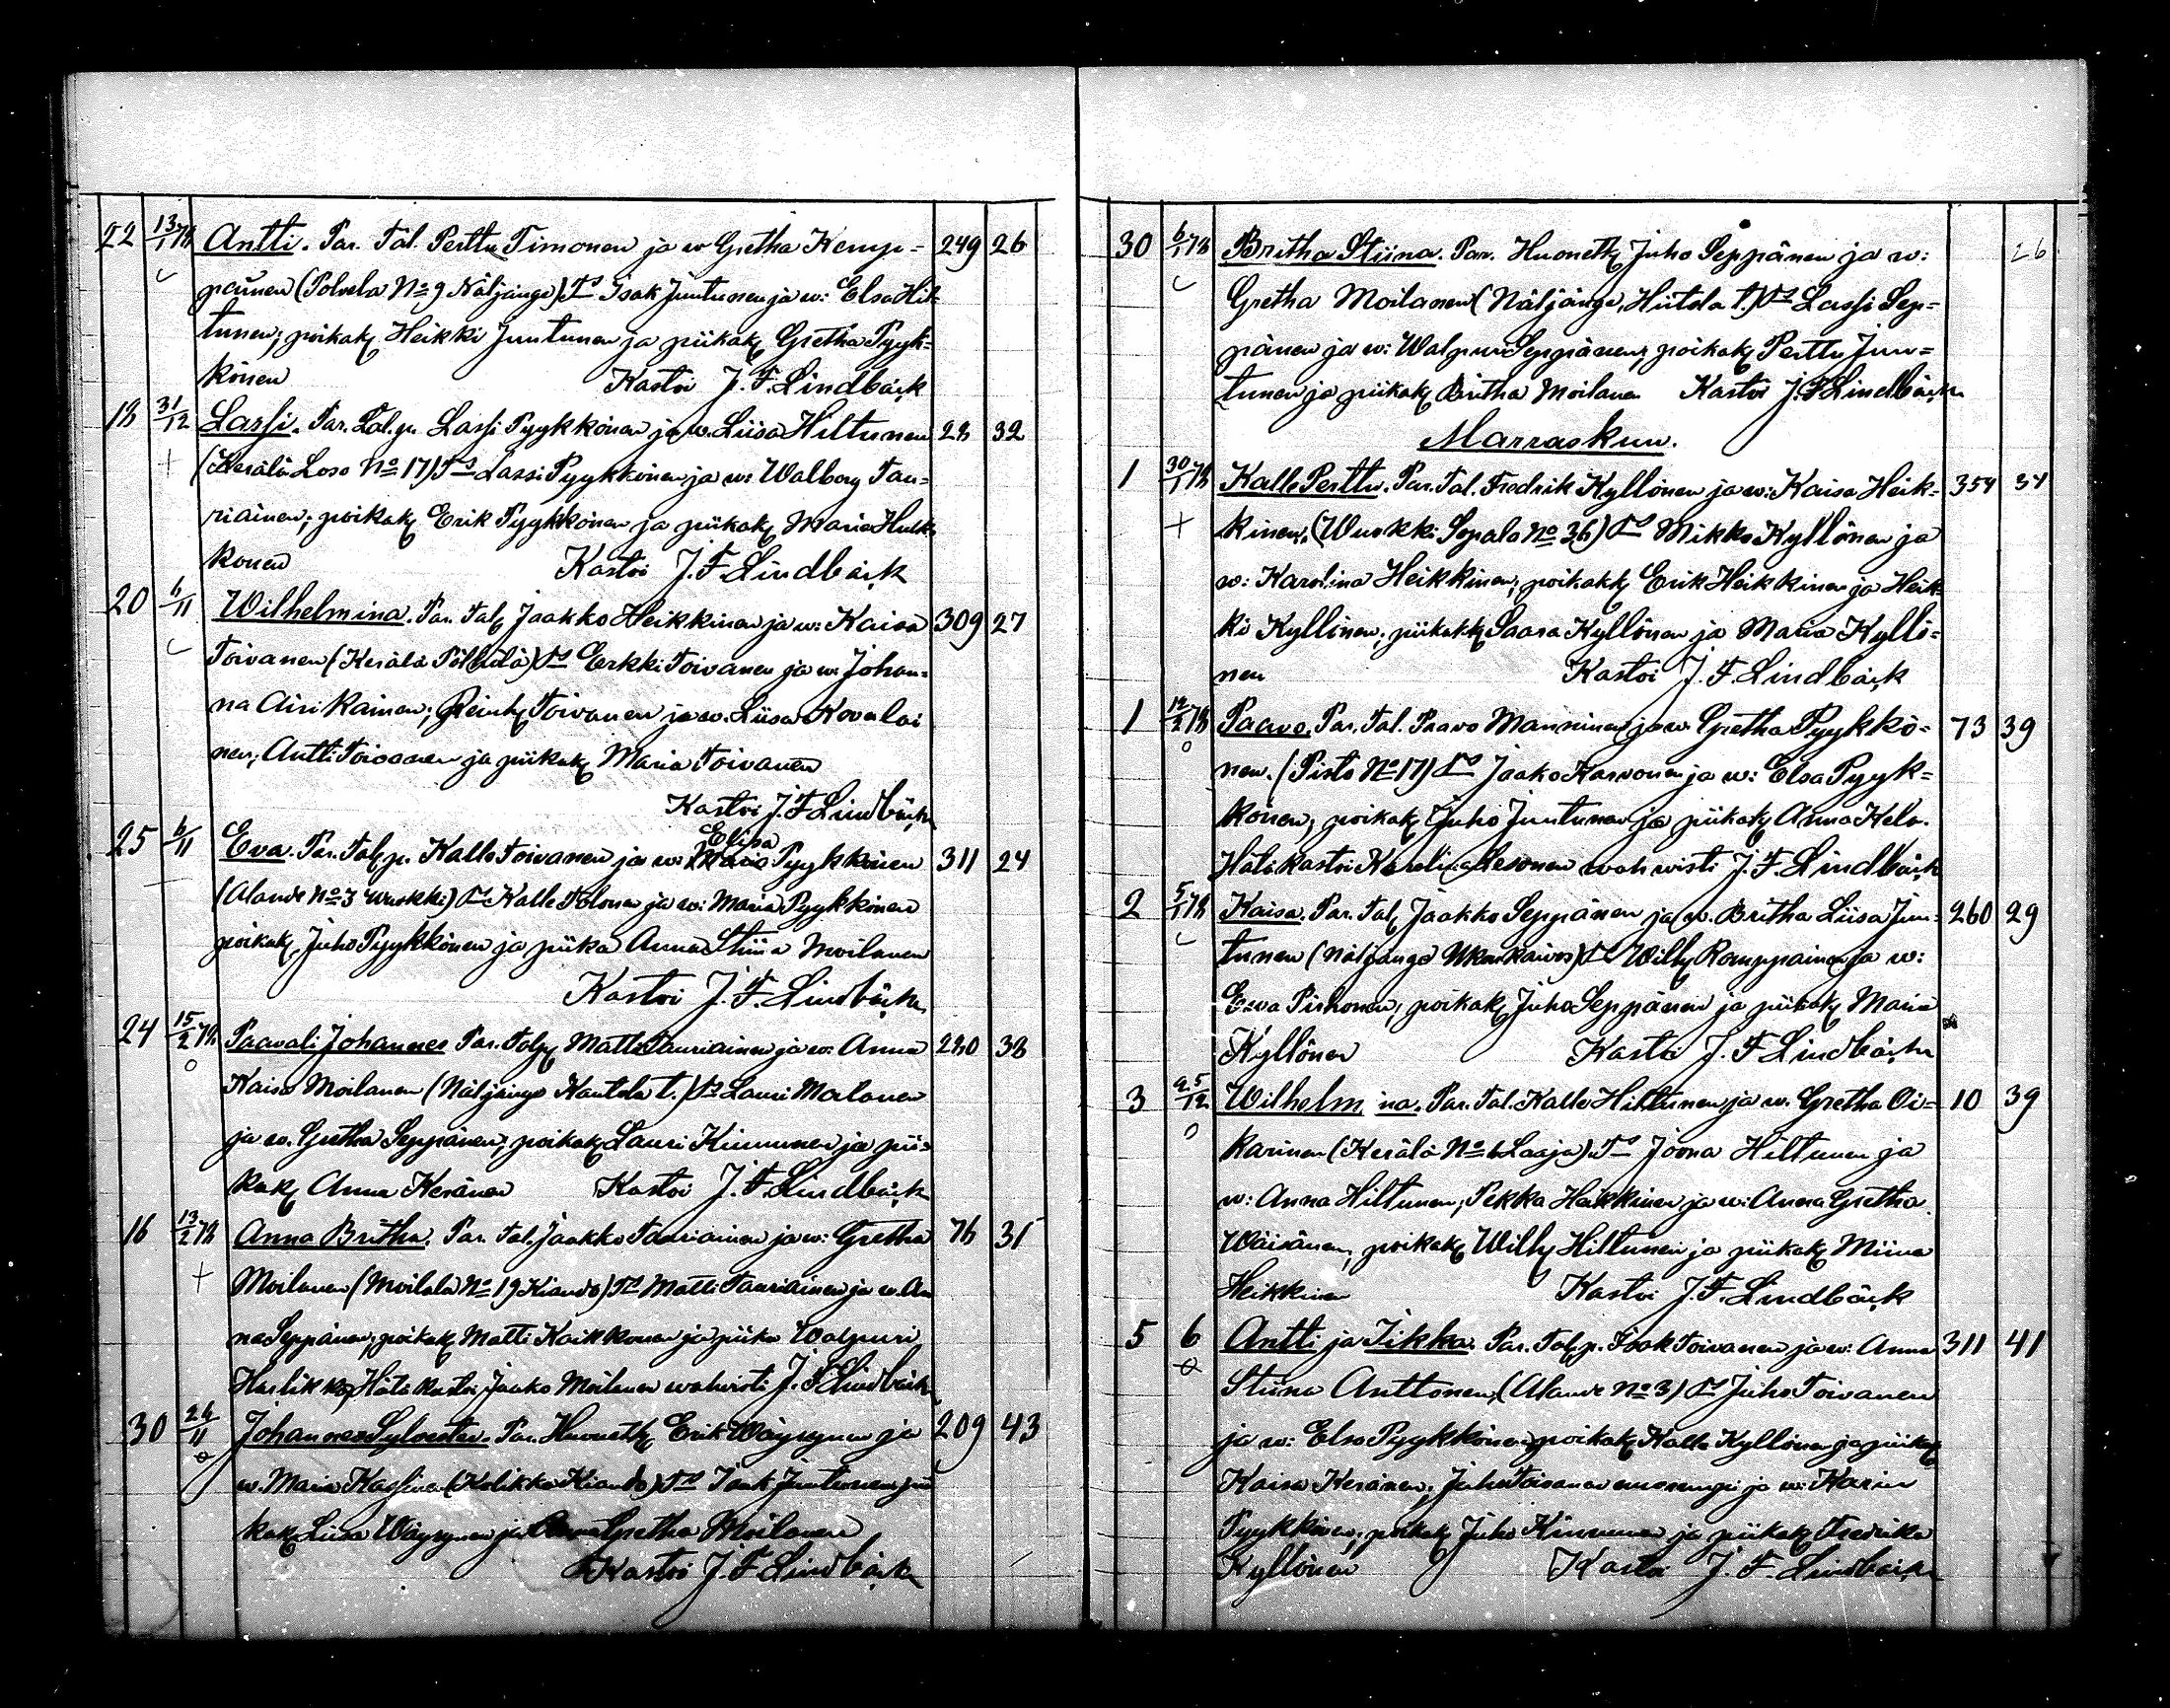 22 13/1 78 Antti. Par. Tal. Perttu Timonen ja w Gretha Kemp= 249 26
päinen (Polvela No 9 Näljängö) Ts Isak Juntunen ja w: Elsa Hil=
tunen; poikak Heikki Juntunen ja piikak Gretha Pyyk=
könen Kastoi J. F. Lindbäck
18 31/12 Lassi. Par. Tal.p. Lassi Pyykkönen ja w. Liisa Hiltunen 28 32
(Kerälä Loso No 17) Ts Lassi Pyykkönen ja w: Walborg Tau=
riainen; poikak Erik Pyykkönen ja piikak Maria Hulk=
konen Kastoi J. F. Lindbäck
20 6/11 Wilhelmina. Par. Tal Jaakko Heikkinen ja w: Kaisa 309 27
Toivanen (Kerälä Pölhölä) Ts Erkki Toivanen ja w. Johan=
na Airikainen; Toivanen ja w. Liisa Kovalai
nen; Antti Toivanen ja piikak Maria Toivanen
Kastoi J. F. Lindbäck
Elisa
25 6/11 Eva. Par. Tal.p. Kalle Toivanen ja w: Maria Pyykkönen 311 24
(Alande No 3 Wuokki) Ts Kalle Polonen ja w: Maria Pyykkönen
poikak Juho Pyykkönen ja piika Anna Stiina Moilanen
Kastoi J. F. Lindbäck
24 15/2 78 Paavali Johannes Par. Tal.p. Matts Tauriainen ja w: Anna 280 38
Kaisa Moilanen (Näljängö Hautela t.) Ts Lauri Moilanen
ja w. Gretha Seppänen; poikak Lauri Kinnunen ja pii=
kak Anna Keränen Kastoi J. F. Lindbäck
16 13/2 78 Anna Britha. Par. Tal. Jaakko Tauriainen ja w: Gretha 76 31
Moilanen (Moilala No 19 Kiando) Ts Matti Tauriainen ja w. An
na Seppänen; poikak Matti Kaikkonen ja piika Walpuri
Hätä kastoi Jaako Moilanen wahvisti J. F. Lindbäck
30 24/11 Johannes Sylvester. Par. Huonetk Erik Wäyrynen ja 209 43
w. Maria Kassinen (Kolikko Kiando) Ts Isak Juntunen pii
kak Liisa Wäyrynen ja Anna Gretha Moilanen
Kastoi J. F. Lindbäck
30 6/1 78 Britha Stiina. Par. Huonetk Juho Seppänen ja w: 26
Gretha Moilanen (Näljängö, Hiitola t.) Ts Lassi Sep=
pänen ja w: Walpuri Seppänen; poikak Perttu Jun=
tunen ja piikak Britha Moilanen Kastoi J. F. Lindbäck
Marraskuu.
1 30/1 78 Kalle Perttu. Par. Tal. Fredrik Kyllönen ja w: Kaisa Heik= 354 31
kinen. (Wuokki Sopala No 36) Ts Mikko Kyllönen ja
w: Karolina Heikkinen; poikakk Erik Heikkinen ja Heik=
ki Kyllönen; piikakk Saara Kyllönen ja Maria Kyllö=
nen Kastoi J. F. Lindbäck
1 12/2 78 Paavo. Par. Tal. Paavo Manninen ja w: Gretha Pyykkö= 73 39
nen. (Pisto No 17) Ts Jaako Karvonen ja w: Elsa Pyyk=
könen; poikak Juho Juntunen ja piikak Anna Kela.
Hätäkastoi wahwisti J. F. Lindbäck
2 5/1 78 Kaisa. Par. Tal Jaakko Seppänen ja w. Britha Liisa Jun= 260 29
tunen (Näljängö) Ts Willy Romppainen ja w:
Eeva Pirhonen; poikak Juho Seppänen ja piikak Maria
Kyllönen Kastoi J. F. Lindbäck
3 25/12 Wilhelmina. Par. Tal. Kalle Hiltunen ja w. Gretha Oi= 10 39
karinen (Kerälä No 6 Laaja). Ts Joona Hiltunen ja
w: Anna Hiltunen; Pekka Heikkinen ja w: Anna Gretha
Wäisänen; poikak Willy Hiltunen ja piikak Miina
Heikkinen Kastoi J. F. Lindbäck
5 6 Antti ja Iikka. Par. Tal.p. Isak Toivanen ja w: Anna 311 41
Stiina Anttonen (Alande No 3) Ts Juho Toivanen
ja w: Elsa Pyykkönen; poikak Kalle Kyllönen ja piikak
Kaisa Keränen; Juho Toivanen nuorempi ja w: Karin
Pyykkönen; poikak Juho Kinnunen ja piikak Fredrika
Kyllönen Kastoi J. F. Lindbäck